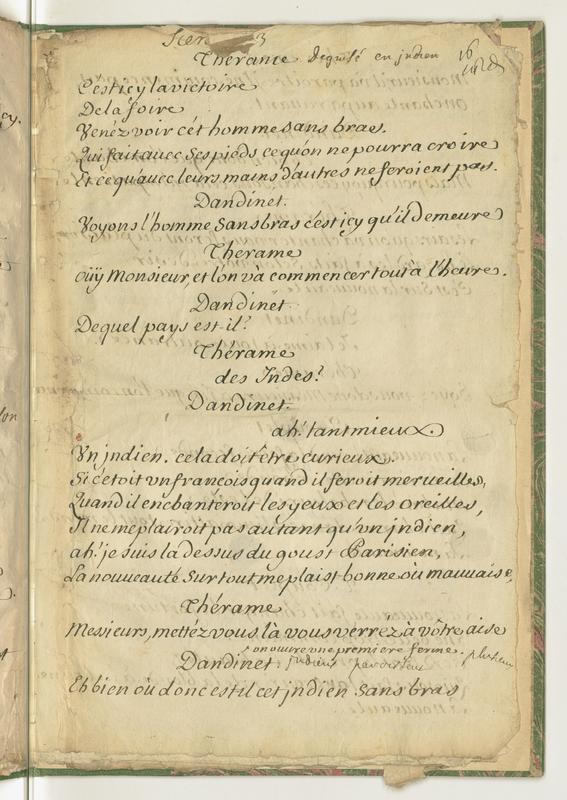 Scen 3
Thérame deguisé en jndien
16
C'est icy la victoire
De la foire
Venéz voir cét homme sans bras.
Qui fait avec ses pieds ce qu'on ne pourra croire
Et ce qu'avec leurs mains d'autres ne feroient pas.
Dandinet.
Voyons l'homme sans bras c'est jcy qu'il demeure
Therame
oüy Monsieur, et l'on và commencer tout à l'heure.
Dandinet.
De quel pays est-il?
Thérame
des Indes?
Dandinet.
ah! tant mieux.
Vn jndien. cela doit être curieux.
Si c'etoit vn francois quand il feroit merueilles,
Quand il enchanteroit les yeux et les oreilles,
Il ne me plairoit pas autant qu'vn jndien,
ah! je suis la dessus du goust Parisien,
La nouueauté sur tout me plaist bonne où mauuaise,
Thérame
Messieurs, mettéz vous là vous verréz à vôtre aise
on ouure vne premiere ferme. plusieurs
Dandinet jndiens paroissent
Eh bien où donc est il cet jndien sans bras